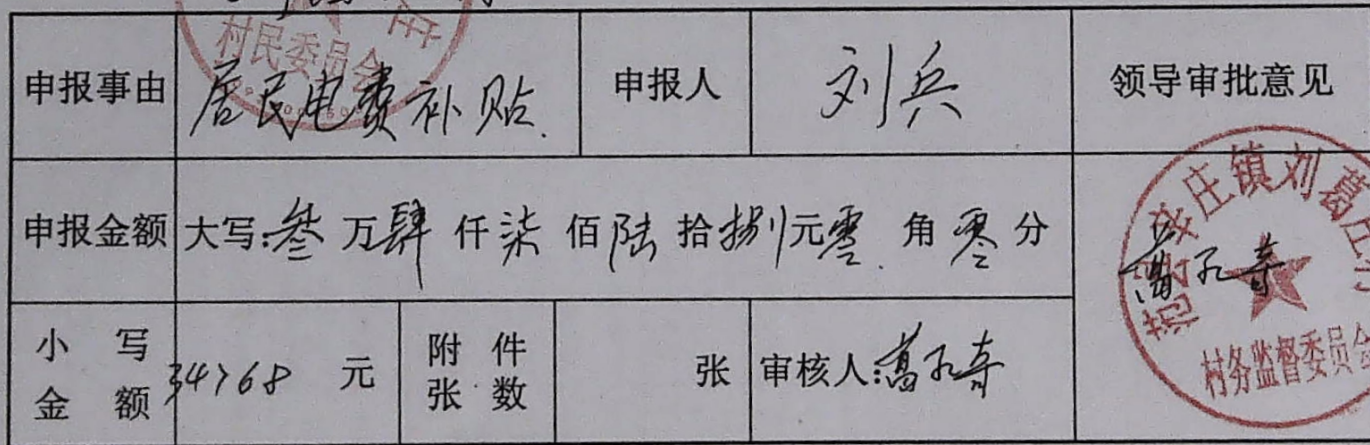 村民委员会
申报事由 居民电费补贴. 申报人 刘兵 领导审批意见
申报金额 大写:叁万肆仟柒佰陆拾捌元零角零分
小写金额 34768 元 附件张数 张 审核人:
庄镇刘葛庄村
村务监督委员会